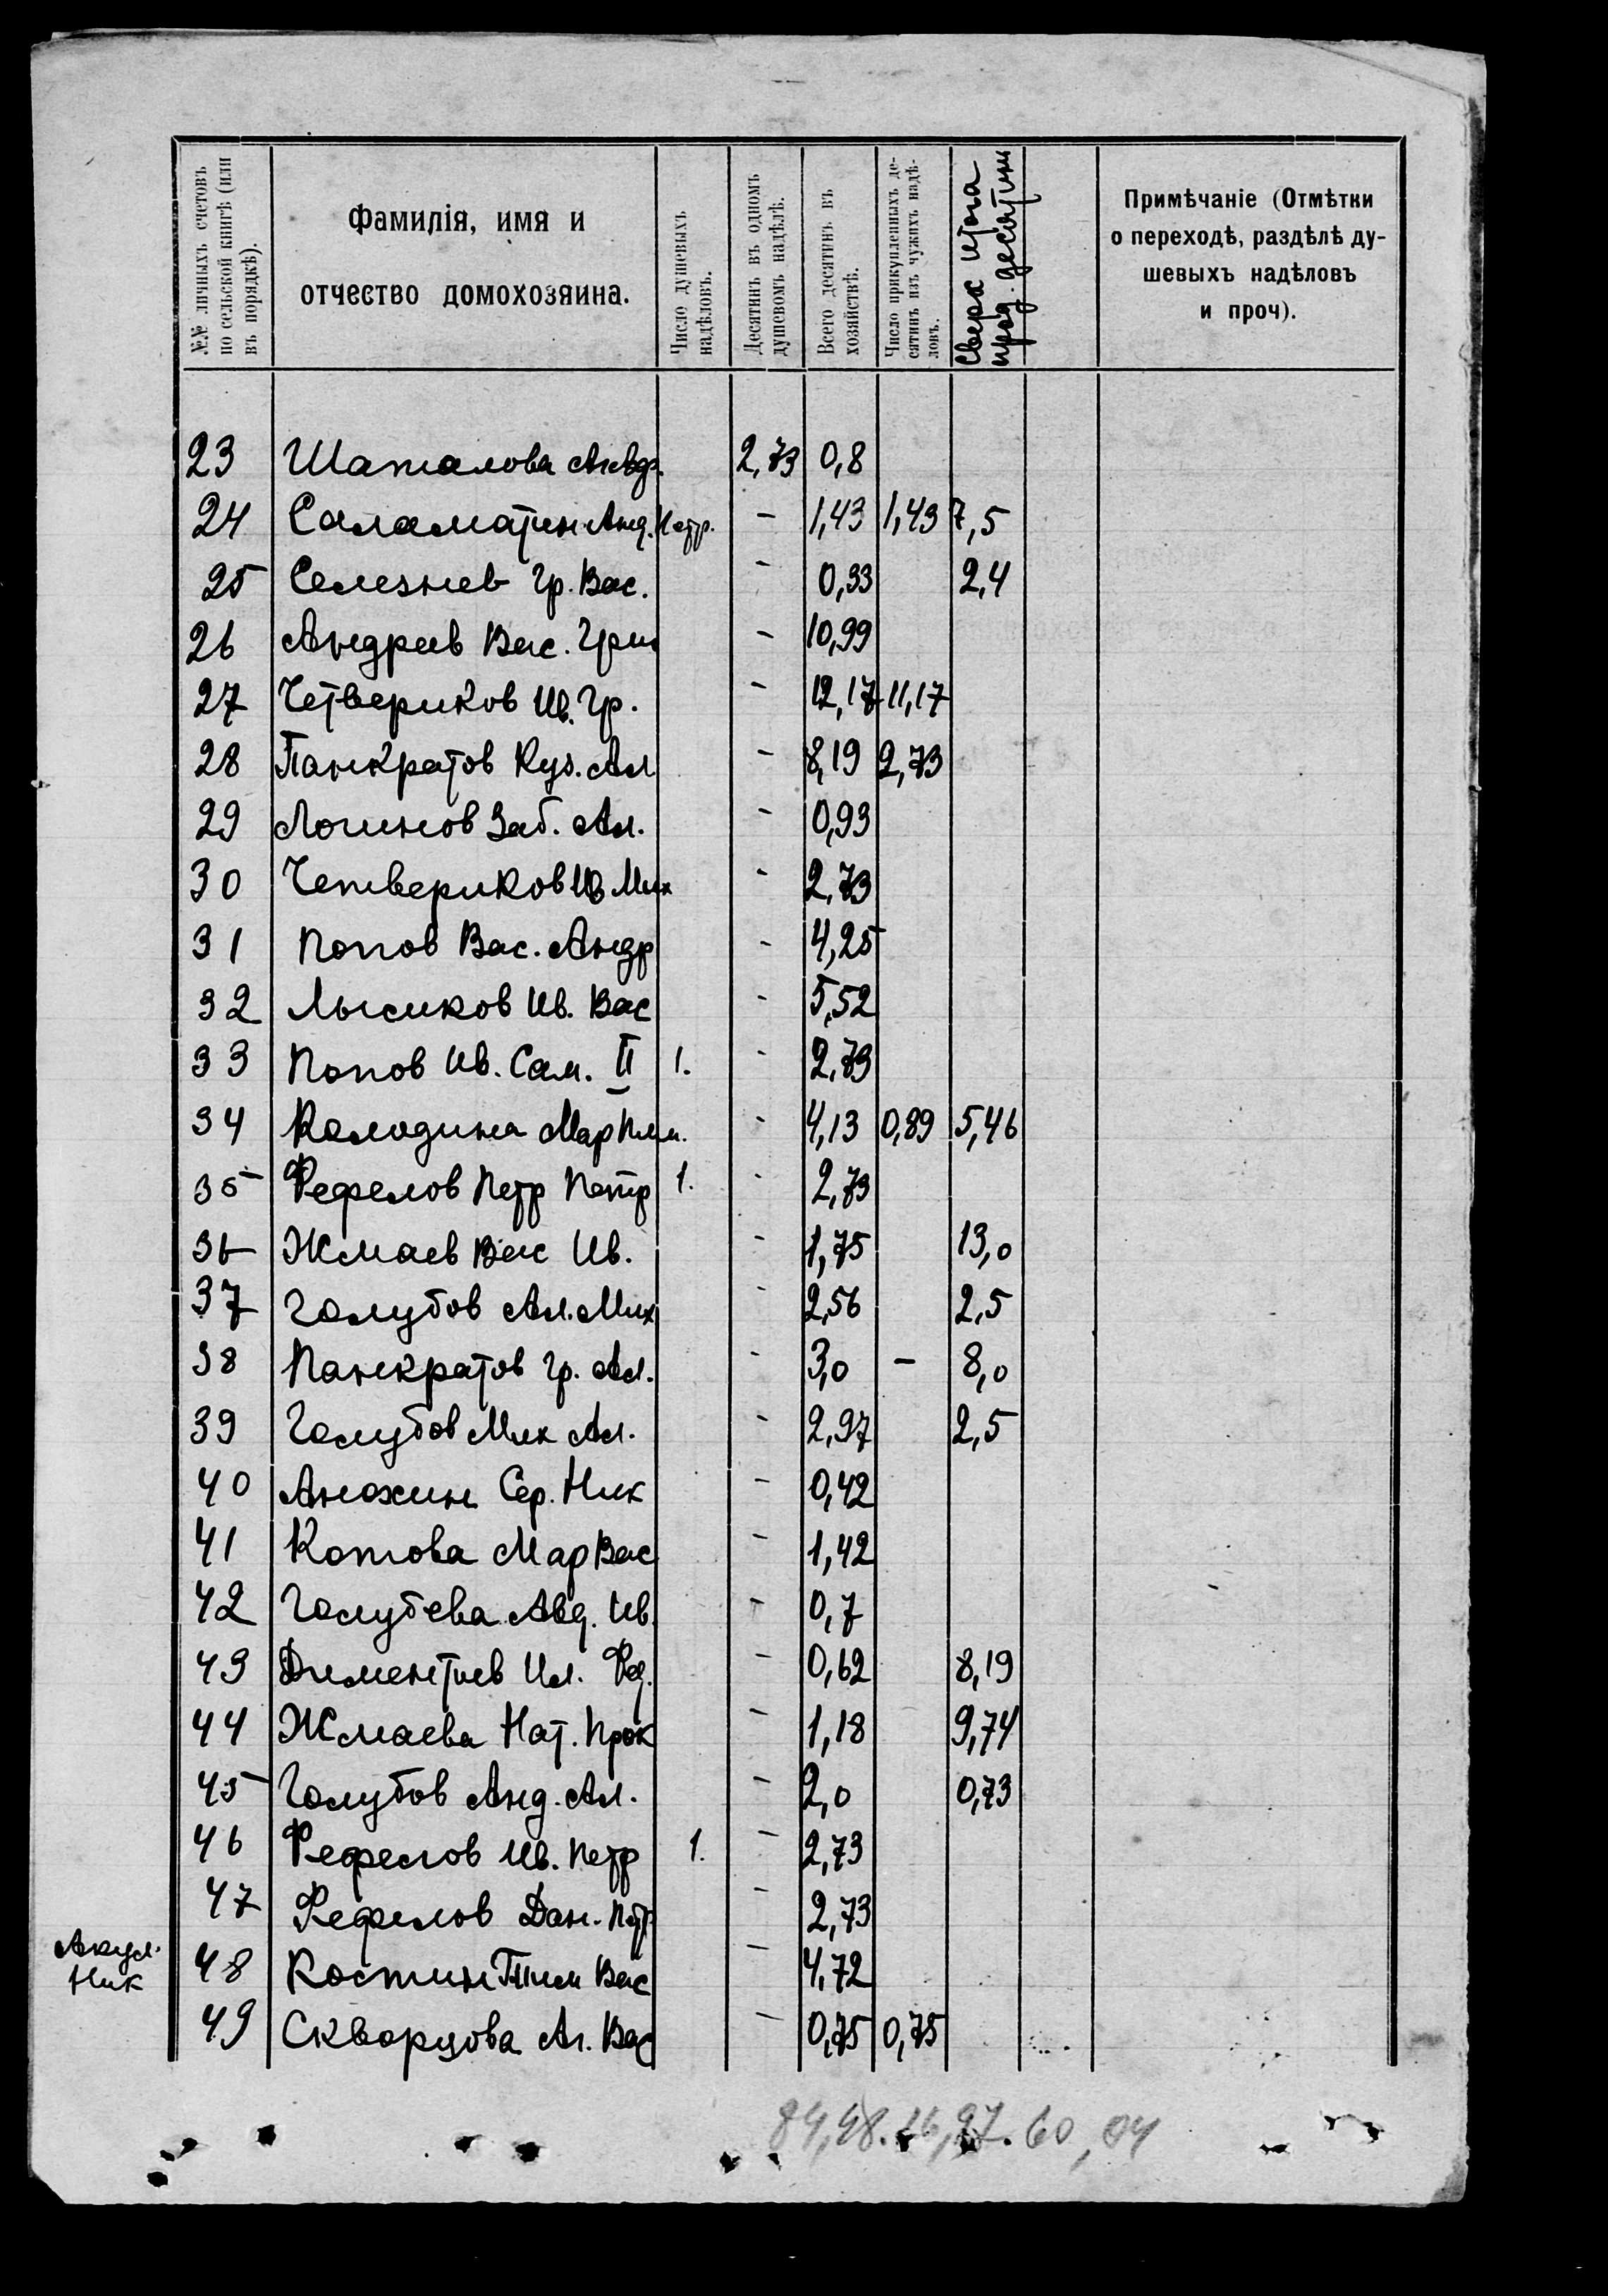 №№ личныхъ счетовъ
по сельской книгѣ (или
въ порядкѣ).
Фамилія, имя и
отчество домохозяина.
Число душевыхъ
надѣловъ.
Десятинъ въ одномъ
душевомъ надѣлѣ.
Всего десятинъ въ
хозяйствѣ.
Число прикупленныхъ де-
сятинъ изъ чужихъ надѣ-
ловъ.
Сверх итога
прод. десятин
Примѣчаніе (Отмѣтки
о переходѣ, раздѣлѣ ду-
шевыхъ надѣловъ
и проч).
23 Шаталова 2,73 0,8
24 Саламатин Анд. Петр. - 1,43 1,43 7,5
25 Селезнев Гр. Вас. - 0,33 2,4
26 Андреев Вас. Григ - 10,99
27 Четвериков Ив. Гр. - 12,17 11,17
28 Панкратов Куз. Ал - 8,19 2,73
29 Логинов Заб. Ал. - 0,93
30 Четвериков Ив Мих - 2,73
31 Попов Вас. Андр - 4,25
32 Лысиков Ив. Вас - 5,52
33 Попов Ив. Сам. II 1. - 2,73
34 Колодина Мар - 4,13 0,89 5,46
35 Фефелов Петр Петр 1. - 2,73
36 Жмаев Вас Ив. - 1,75 13,0
37 Голубов Ал. Мих - 2,56 2,5
38 Панкратов Гр. Ал. - 3,0 - 8,0
39 Голубов Мих Ал. - 2,97 2,5
40 Анохин Сер. Ник - 0,42
41 Котова Мар Вас - 1,42
42 Голубева Авд. Ив. - 0,7
43 Диментиев Ил. Фед. - 0,62 8,19
44 Жмаева Нат. Прок - 1,18 9,74
45 Голубов Анд. Ал. - 2,0 0,73
46 Фефелов Ив. Петр 1. - 2,73
47 Фефелов Дан. Петр - 2,73
Акул.
Ник
48 Костин Тим Вас - 4,72
49 Скворцова Аг. Вас - 0,75 0,75
84,48. 16,97. 60,04